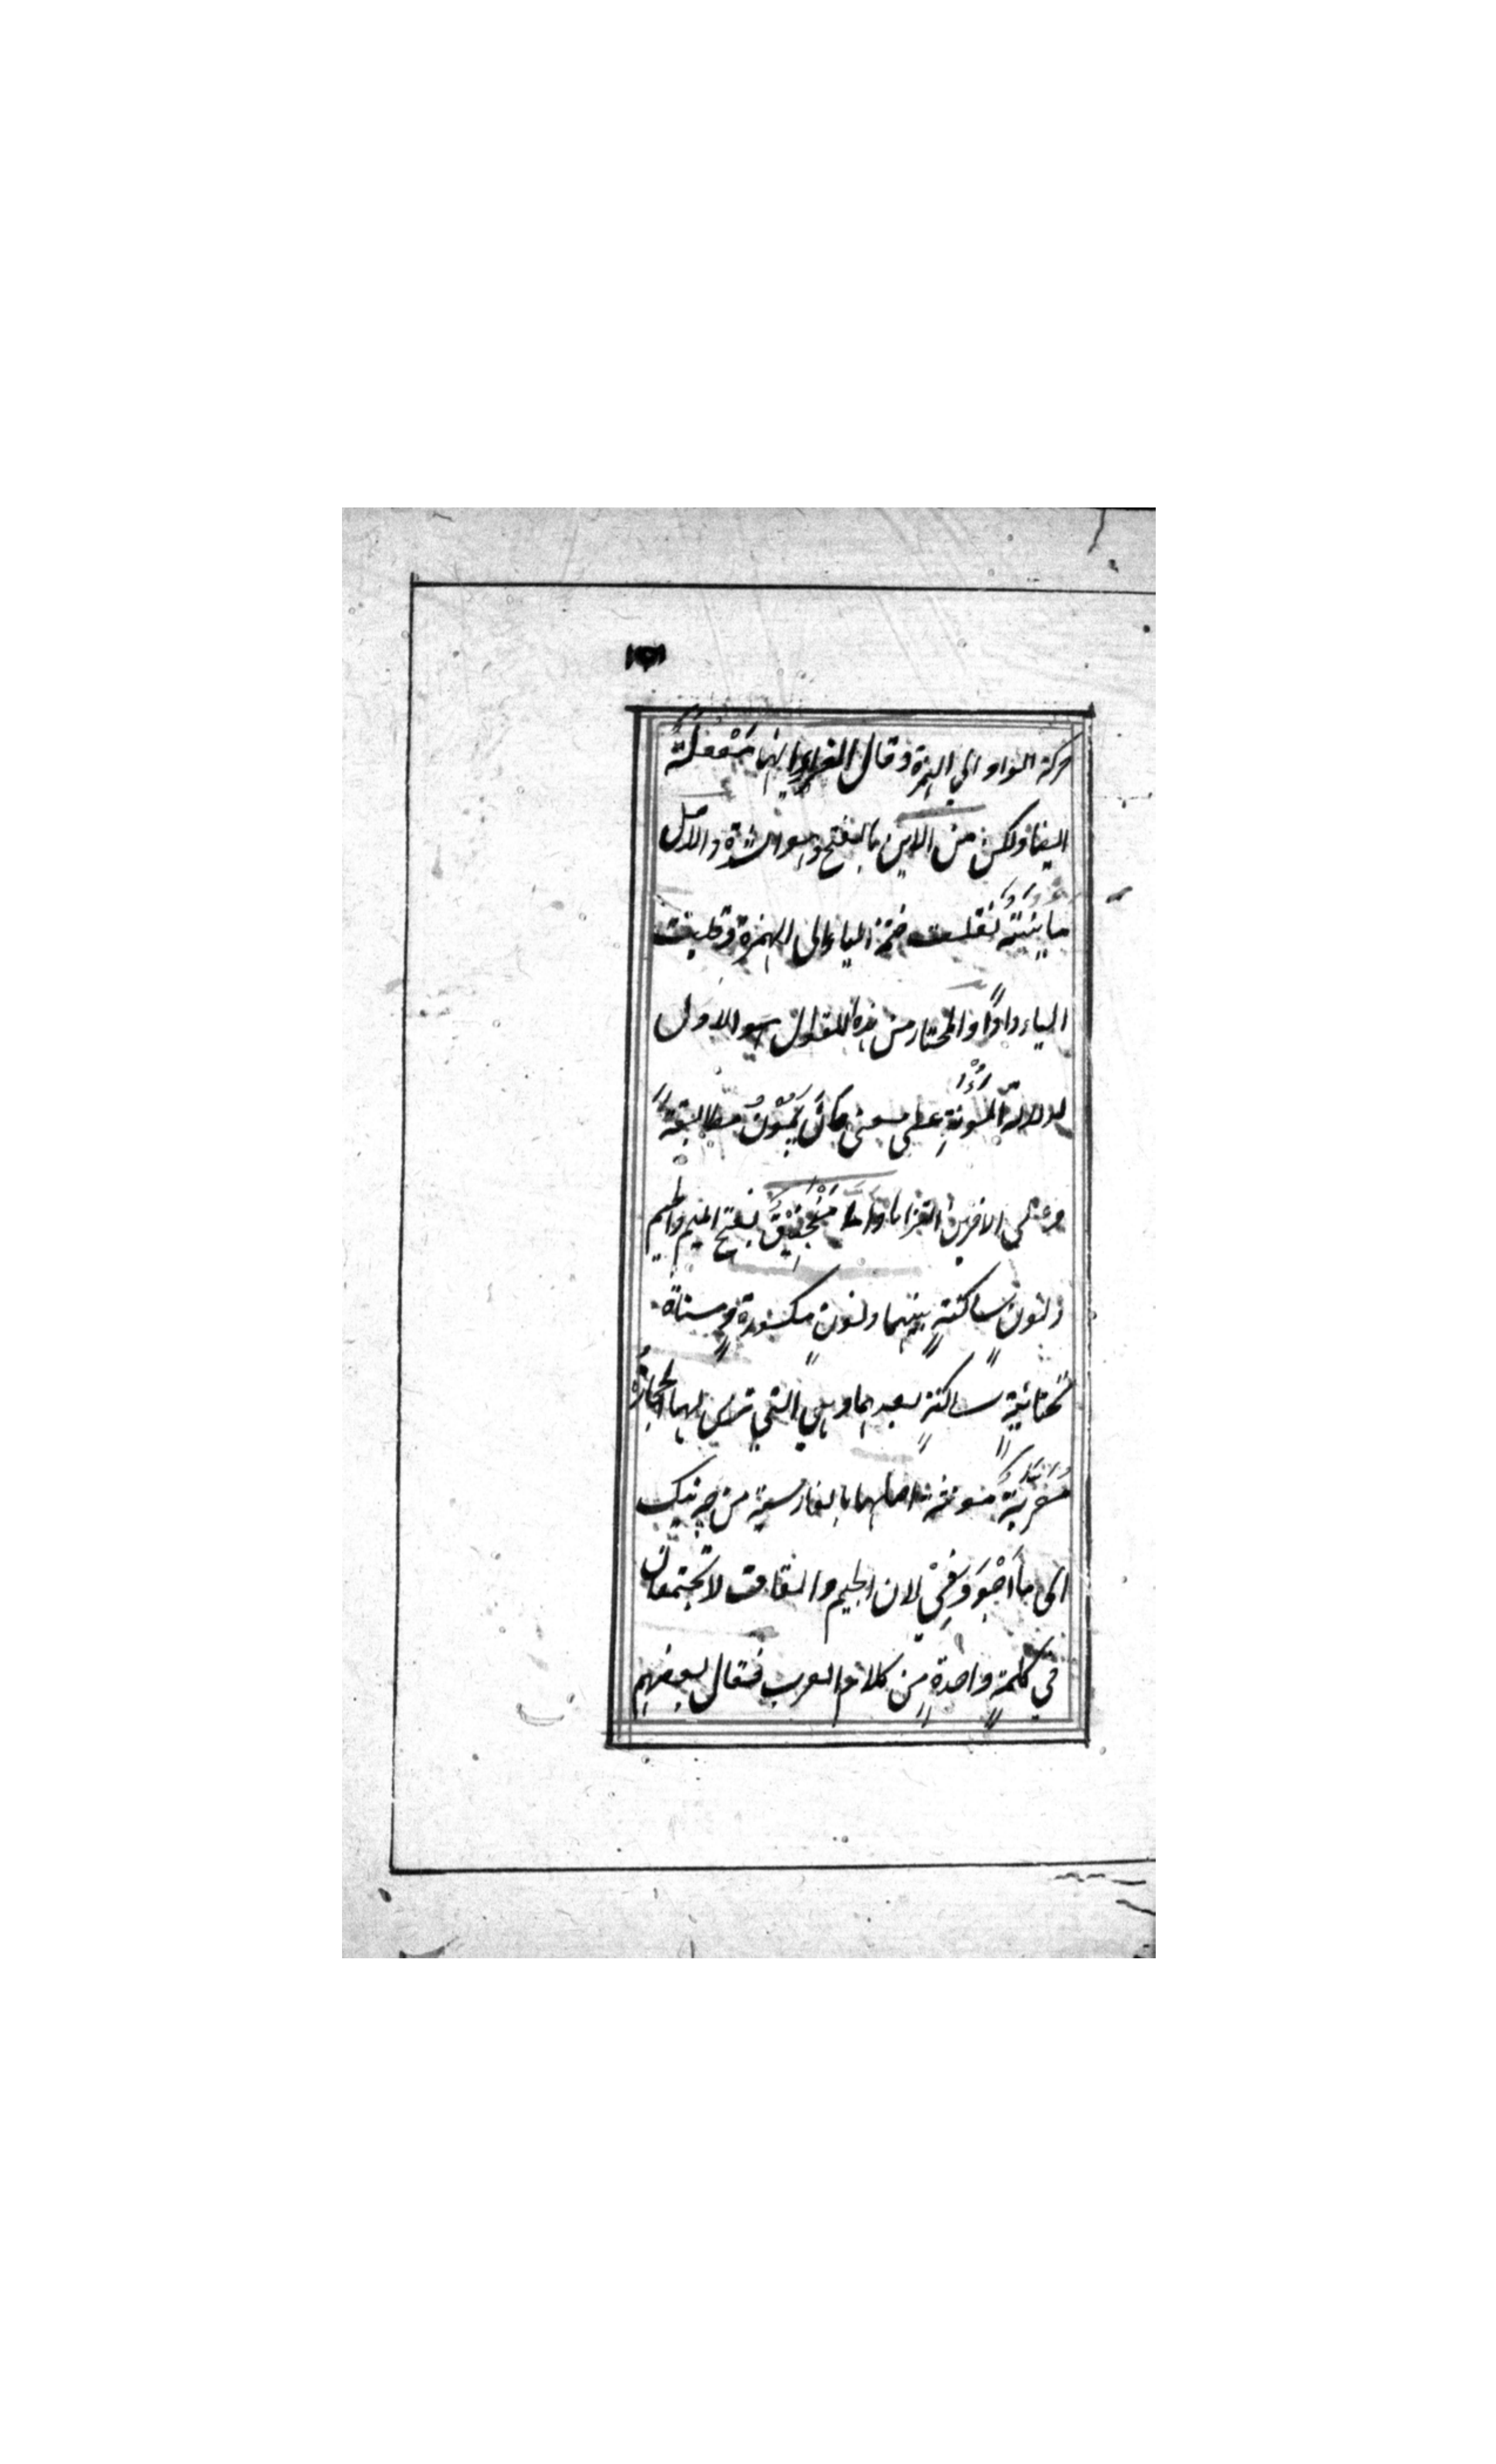 ١٥١
حركة الواو الى الهمزة وقال الفراء انها مَفْعُلَةٌ
ايضا ولكن من الاين بالفتح وهو الشدة والاصل
مايُنَةٌ نقلت ضمة الياء الى الهمزة وقلبت
الياء واوًا والمختار من هذه الاقوال هو الاول
لدلالة المَؤُنَةِ على معنى مَانَ يَمُوْنُ مطابقةً
وعلى الاخرين التزاما وامّا مَنْجَنِيْقٌ بفتح الميم والجيم
ونون ساكنةٍ بينهما ونونٍ مكسورةٍ ومثناة
تحتانيةٍ ساكنةٍ بعدها وهي التي ترمى بها الحجارةُ
مُعَرَّبَةٌ مونثة اصلها بالفارسية من چه نیک
اى ما اَجْوَدَنِيْ لان الجيم والقاف لا تجتمعان
في كلمةٍ واحدةٍ مِن كلام العرب فقال بعضهم